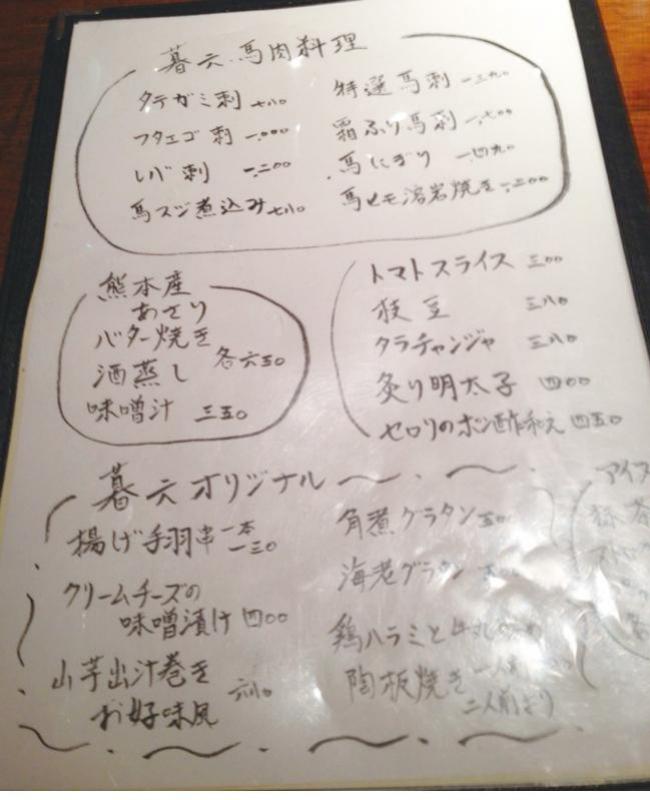 暮六 馬肉料理
タテガミ刺 七八〇
フタエゴ刺 一、〇〇〇
レバ刺 一、二〇〇
馬スジ煮込み 七八〇
特選馬刺 一、三九〇
霜ふり馬刺 一、七〇〇
馬にぎり 一、四九〇
馬ヒモ溶岩焼き 一、三〇〇
熊本産
あさり
バター焼き
酒蒸し 各六五〇
味噌汁 三五〇
トマトスライス 三〇〇
枝豆 三八〇
タラチャンジャ 三八〇
炙り明太子 四〇〇
セロリのポン酢和え 四五〇
暮六オリジナル
揚げ手羽串 一本
一三〇
クリームチーズの
味噌漬け 四〇〇
山芋出汁巻き
お好味風 六八〇
角煮グラタン
海老グラタン
鶏ハラミと
陶板焼き 一人前
二人前より
アイス
抹茶